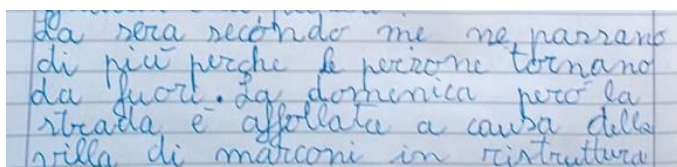 La sera secondo me ne passano
di più perche le perzone tornano
da fuori. La domenica però la
strada è affollata a causa della
villa di marconi in ristruttura